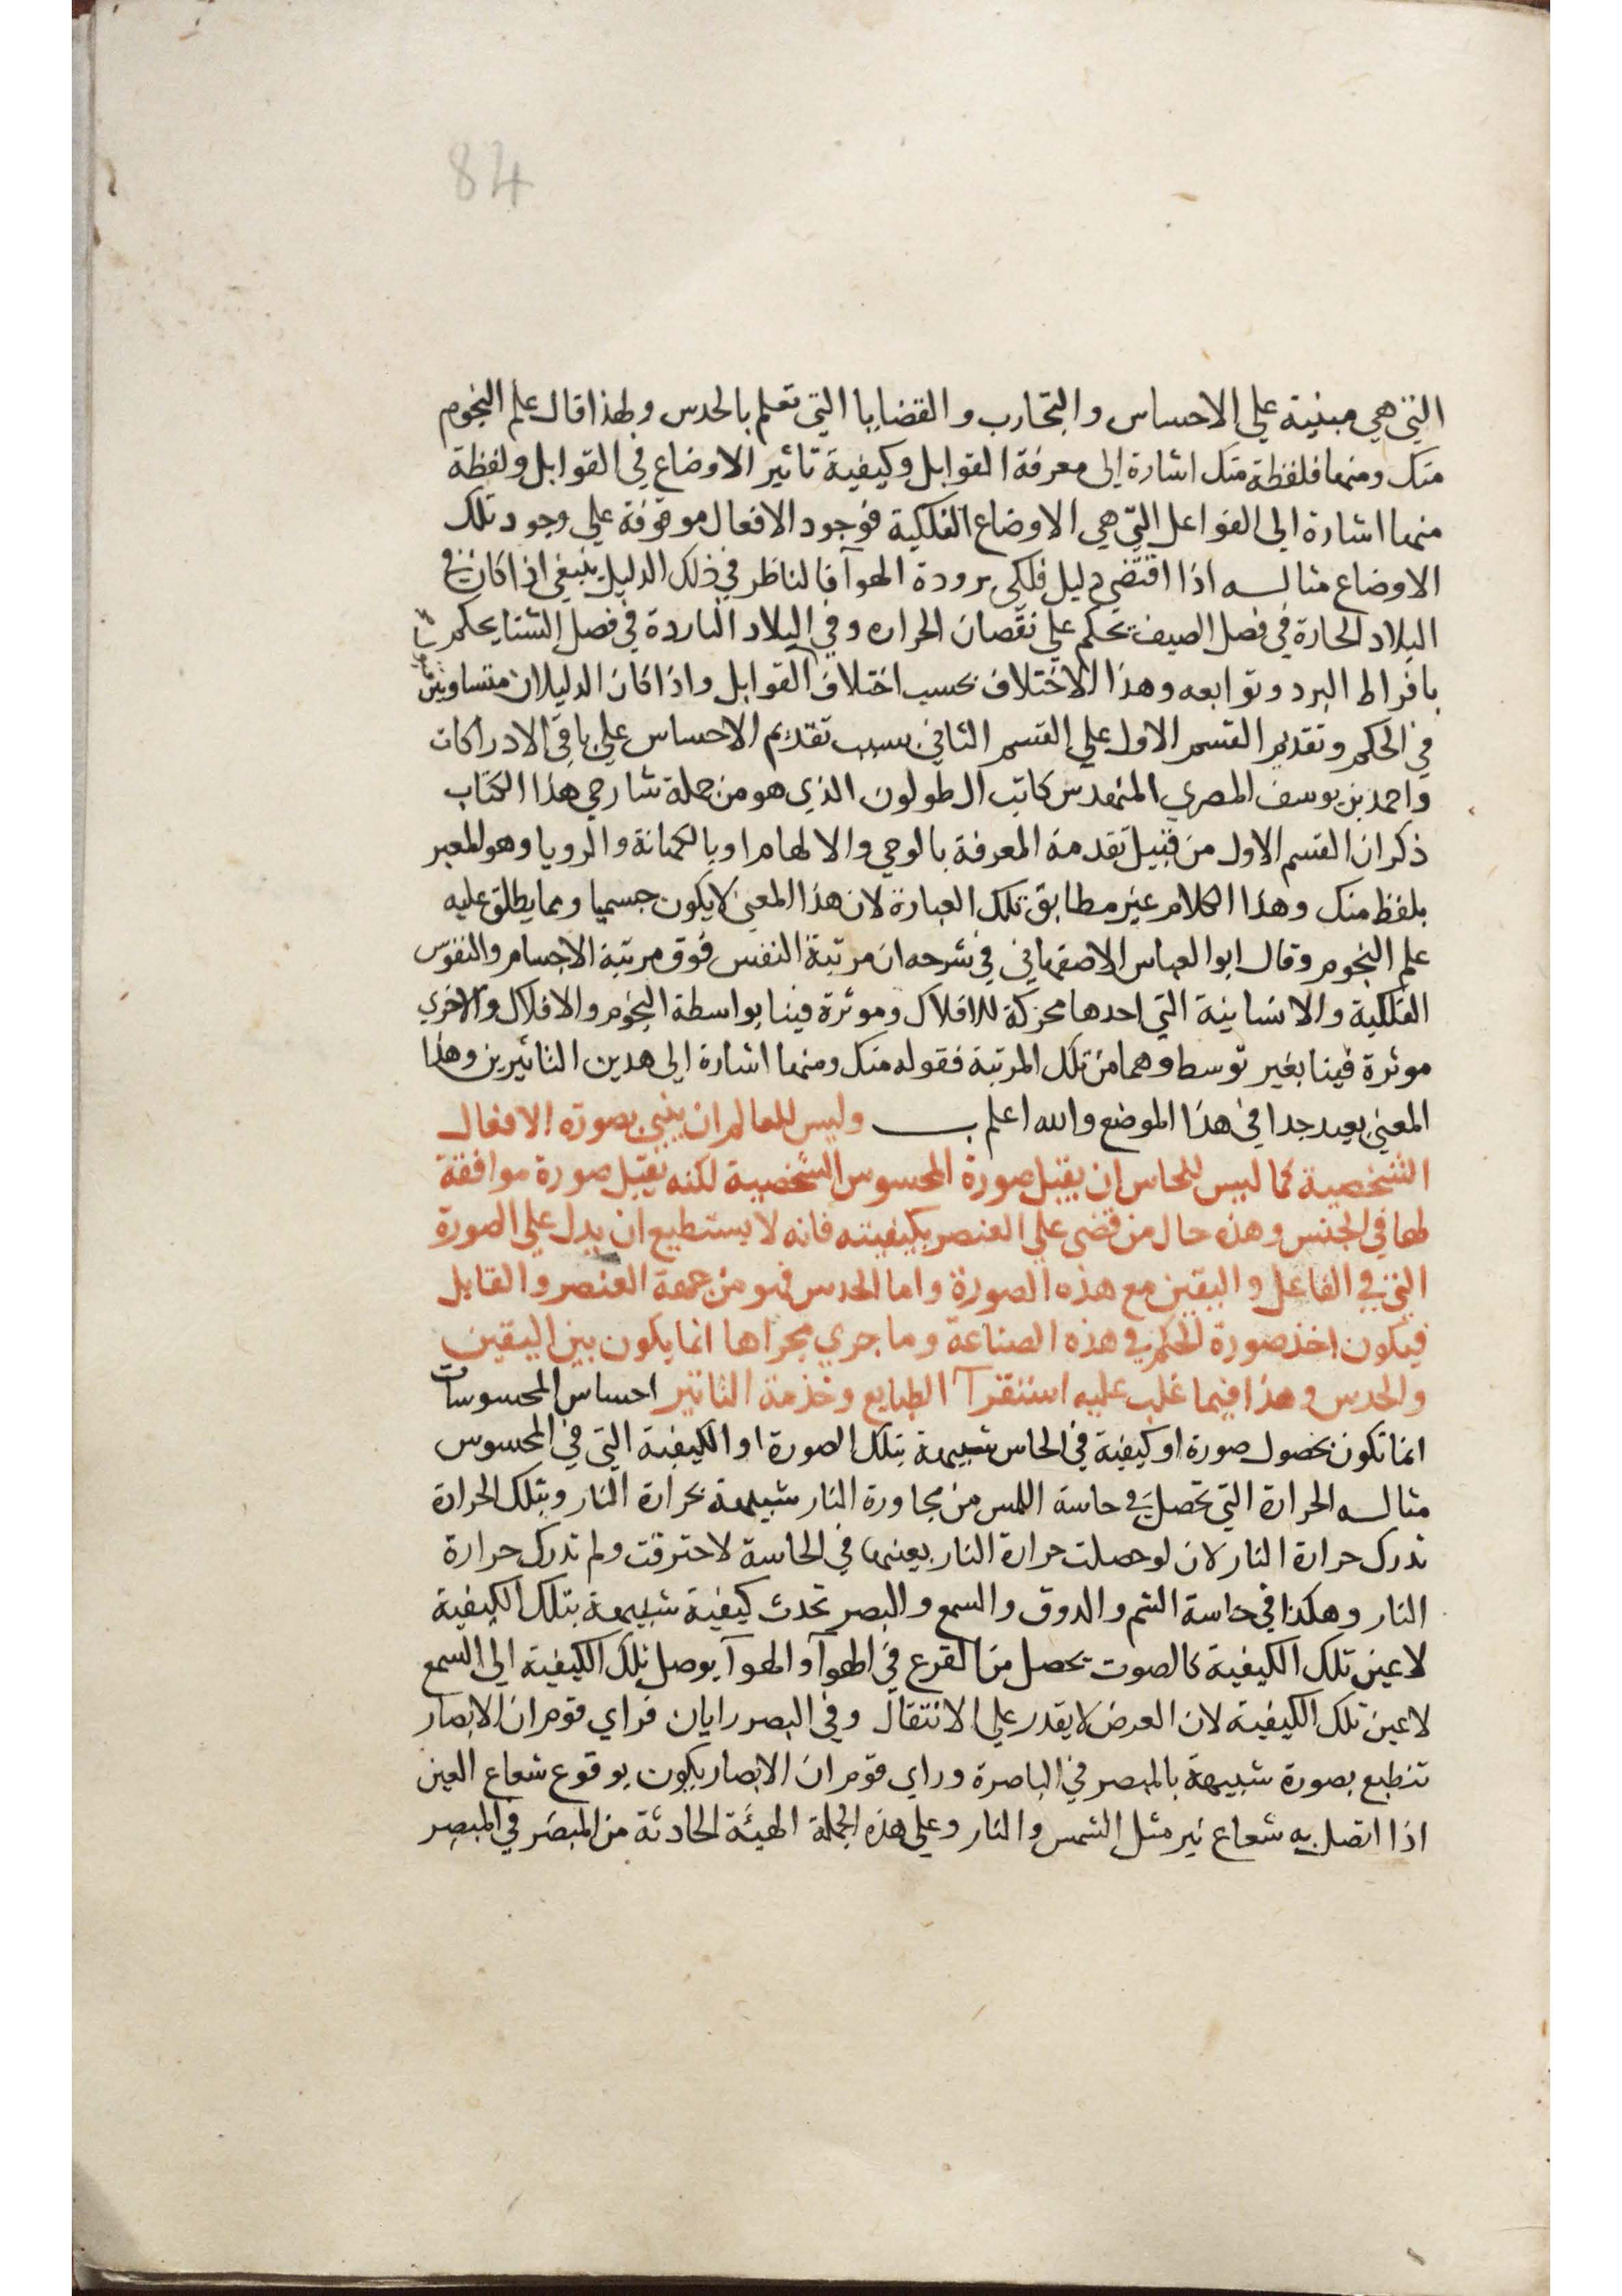 84
التي هي مبنية علي الاحساس والتجارب والقضايا التي تعلم بالحدس ولهذا قال علم النجوم
منك ومنها فلفظة منك اشارة الي معرفة القوابل وكيفية تاثير الاوضاع في القوابل ولفظة
منها اشارة الي الفواعل التي هي الاوضاع الفلكية فوجود الافعال موقوفة علي وجود تلك
الاوضاع مثاله اذا اقتضي دليل فلكي برودة الهوآ فالناظر في ذلك الدليل ينبغي اذا كان في
البلاد الحارة في فصل الصيف يحكم علي نقصان الحراره وفي البلاد الباردة في فصل الشتا يحكم
بافراط البرد وتوابعه وهذا الاختلاف بحسب اختلاف القوابل واذا كان الدليلان متساويين
في الحكم وتقديم القسم الاول علي القسم الثاني بسبب تقديم الاحساس علي باقي الادراكات
واحمد بن يوسف المصري المهندس كاتب ال طولون الذي هو من جملة شارحي هذا الكتاب
ذكر ان القسم الاول من قبيل تقدمة المعرفة بالوحي والالهام او بالكهانة والرويا وهو المعبر
بلفظ منك وهذا الكلام غير مطابق تلك العبارة لان هذا المعني لا يكون جسميا ومما يطلق عليه
علم النجوم وقال ابو العباس الاصفهاني في شرحه ان مرتبة النفس فوق مرتبة الاجسام والنفوس
الفلكية والانسانية التي احدها محركة للافلاك وموثرة فينا بواسطة النجوم والافلاك والاخري
موثرة فينا بغير توسط وهما من تلك المرتبة فقوله منك ومنها اشارة الي هدين التاثيرين وهذا
المعني بعيد جدا في هذا الموضع والله اعلم ب وليس للعالم ان ينبي بصورة الافعال
الشخصية كما ليس للحاس ان يقبل صورة المحسوس الشخصية لكنه يقبل صورة موافقة
لها في الجنس وهذه حال من قضي علي العنصر بكيفيته فانه لا يستطيع ان يدل علي الصورة
التي في الفاعل واليقين مع هذه الصورة واما الحدس فهو من جهة العنصر والقابل
فيكون اخذ صورة الحكم في هذه الصناعة وما جري مجراها انما يكون بين اليقين
والحدس وهذا فيما غلب عليه استقرآ الطبايع وخدمة التاثير احساس المحسوسات
انما تكون بحصول صورة او كيفية في الحاس شبيهة بتلك الصورة او الكيفية التي في المحسوس
مثاله الحرارة التي تحصل في حاسة اللمس من مجاورة النار شبيهة بحرارة النار وبتلك الحرارة
تدرك حرارة النار لان لو حصلت حرارة النار بعينها في الحاسة لاحترقت ولم تدرك حرارة
النار وهكذا في حاسة الشم والدوق والسمع والبصر تحدث كيفية شبيهة بتلك الكيفية
لا عين تلك الكيفية كالصوت يحصل من القرع في الهوآ والهوآ يوصل تلك الكيفية الي السمع
لا عين تلك الكيفية لان العرض لا يقدر علي الانتقال وفي البصر رايان فراي قوم ان الابصار
تنطبع بصورة شبيهة بالمبصر في الباصرة وراي قوم ان الابصار يكون بوقوع شعاع العين
اذا اتصل به شعاع نير مثل الشمس والنار وعلي هذه الجملة الهيئة الحادثة من المبصر في المبصر